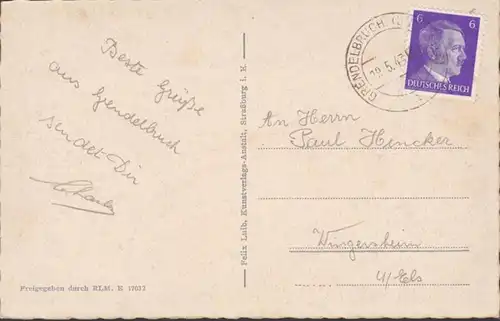 Beste Grüße
aus Grendelbruch
sendet Dir
Charles
Freigegeben durch RLM. E 17013
Felix Luib, Kunstverlags-Anstalt, Straßburg i. E.
GRENDELBRUCH
19.5.43
6 6
DEUTSCHES REICH
An Herrn
Paul Hincker
Wingersheim
U/Els